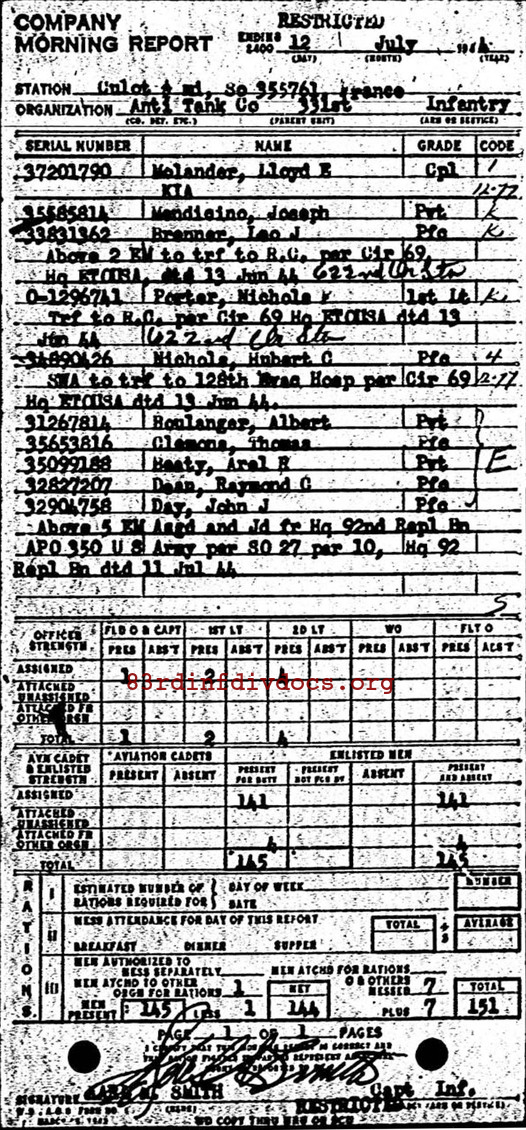 COMPANY
MORNING REPORT
RESTRICTED
ENDING 2400 12 July 1944
(DAY) (MONTH) (YEAR)
STATION Culot 4 mi, So 355761, France
ORGANIZATION Anti Tank Co 331st Infantry
(CO. DET. ETC.) (PARENT UNIT) (ARM OR SERVICE)
SERIAL NUMBER NAME GRADE CODE
37201790 Molander, Lloyd E Cpl 1
KIA 12-77
35585814 Mendicino, Joseph Pvt K
33831362 Brenner, Leo J Pfc K
Above 2 EM to trf to R.C. per Cir 69,
Hq ETOUSA, dtd 13 Jun 44 622nd Clr Sta
O-1296741 Porter, Nichols 1st Lt K
Trf to R.C. per Cir 69 Hq ETOUSA dtd 13
Jun 44 622nd Clr Sta
34890426 Nichols, Hubert C Pfc 4
SWA to trf to 128th Evac Hosp per Cir 69 12-77
Hq ETOUSA dtd 13 Jun 44.
31267814 Boulanger, Albert Pvt
35653816 Clemons, Thomas Pfc
35099188 Beaty, Arel Pvt E
32827207 Dean, Raymond C Pfc
32904758 Day, John J Pfc
Above 5 EM Asgd and Jd fr Hq 92nd Repl Bn
APO 350 U S Army per SO 27 par 10, Hq 92
Repl Bn dtd 11 Jul 44
S
OFFICER STRENGTH FLD O & CAPT 1ST LT 2D LT WO FLT O
PRES ABS'T PRES ABS'T PRES ABS'T PRES ABS'T PRES ABS'T
ASSIGNED 1 2 4
ATTACHED UNASSIGNED
83rdinfdivdocs.org
ATTACHED FR OTHER ORGN
TOTAL 1 2 4
AVN CADET & ENLISTED STRENGTH AVIATION CADETS ENLISTED MEN
PRESENT ABSENT PRESENT FOR DUTY PRESENT NOT FOR DY ABSENT PRESENT AND ABSENT
ASSIGNED 141 141
ATTACHED UNASSIGNED
ATTACHED FR OTHER ORGN 4 4
TOTAL 145 145
RATIONS
I ESTIMATED NUMBER OF RATIONS REQUIRED FOR DAY OF WEEK DATE NUMBER
II MESS ATTENDANCE FOR DAY OF THIS REPORT TOTAL ÷ 3 AVERAGE
BREAKFAST DINNER SUPPER
III MEN AUTHORIZED TO MESS SEPARATELY MEN ATCHD FOR RATIONS
MEN ATCHD TO OTHER ORGN FOR RATIONS 1 NET O & OTHERS MESSED 7 TOTAL
MEN PRESENT 145 LESS 1 144 PLUS 7 151
PAGE 1 OF 1 PAGES
SIGNATURE SMITH Capt Inf.
RESTRICTED